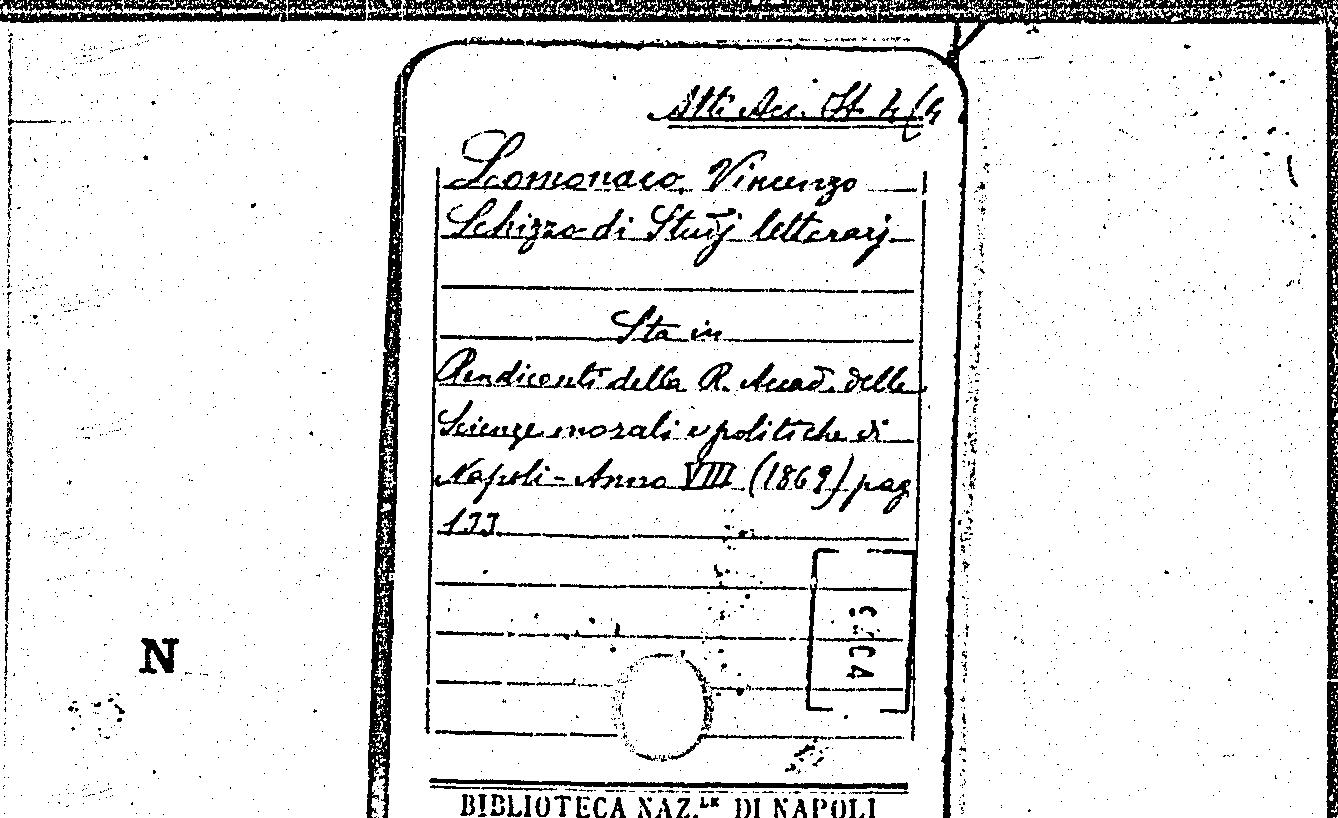 Atti Acc. It. 4/4
Lomonaco Vincenzo
Schizzo di Studj letterarj
Sta in
Rendiconti della R. Accad. delle
Scienze morali e politiche di
Napoli - Anno VIII (1869) pag
177
N
BIBLIOTECA NAZ.LE DI NAPOLI